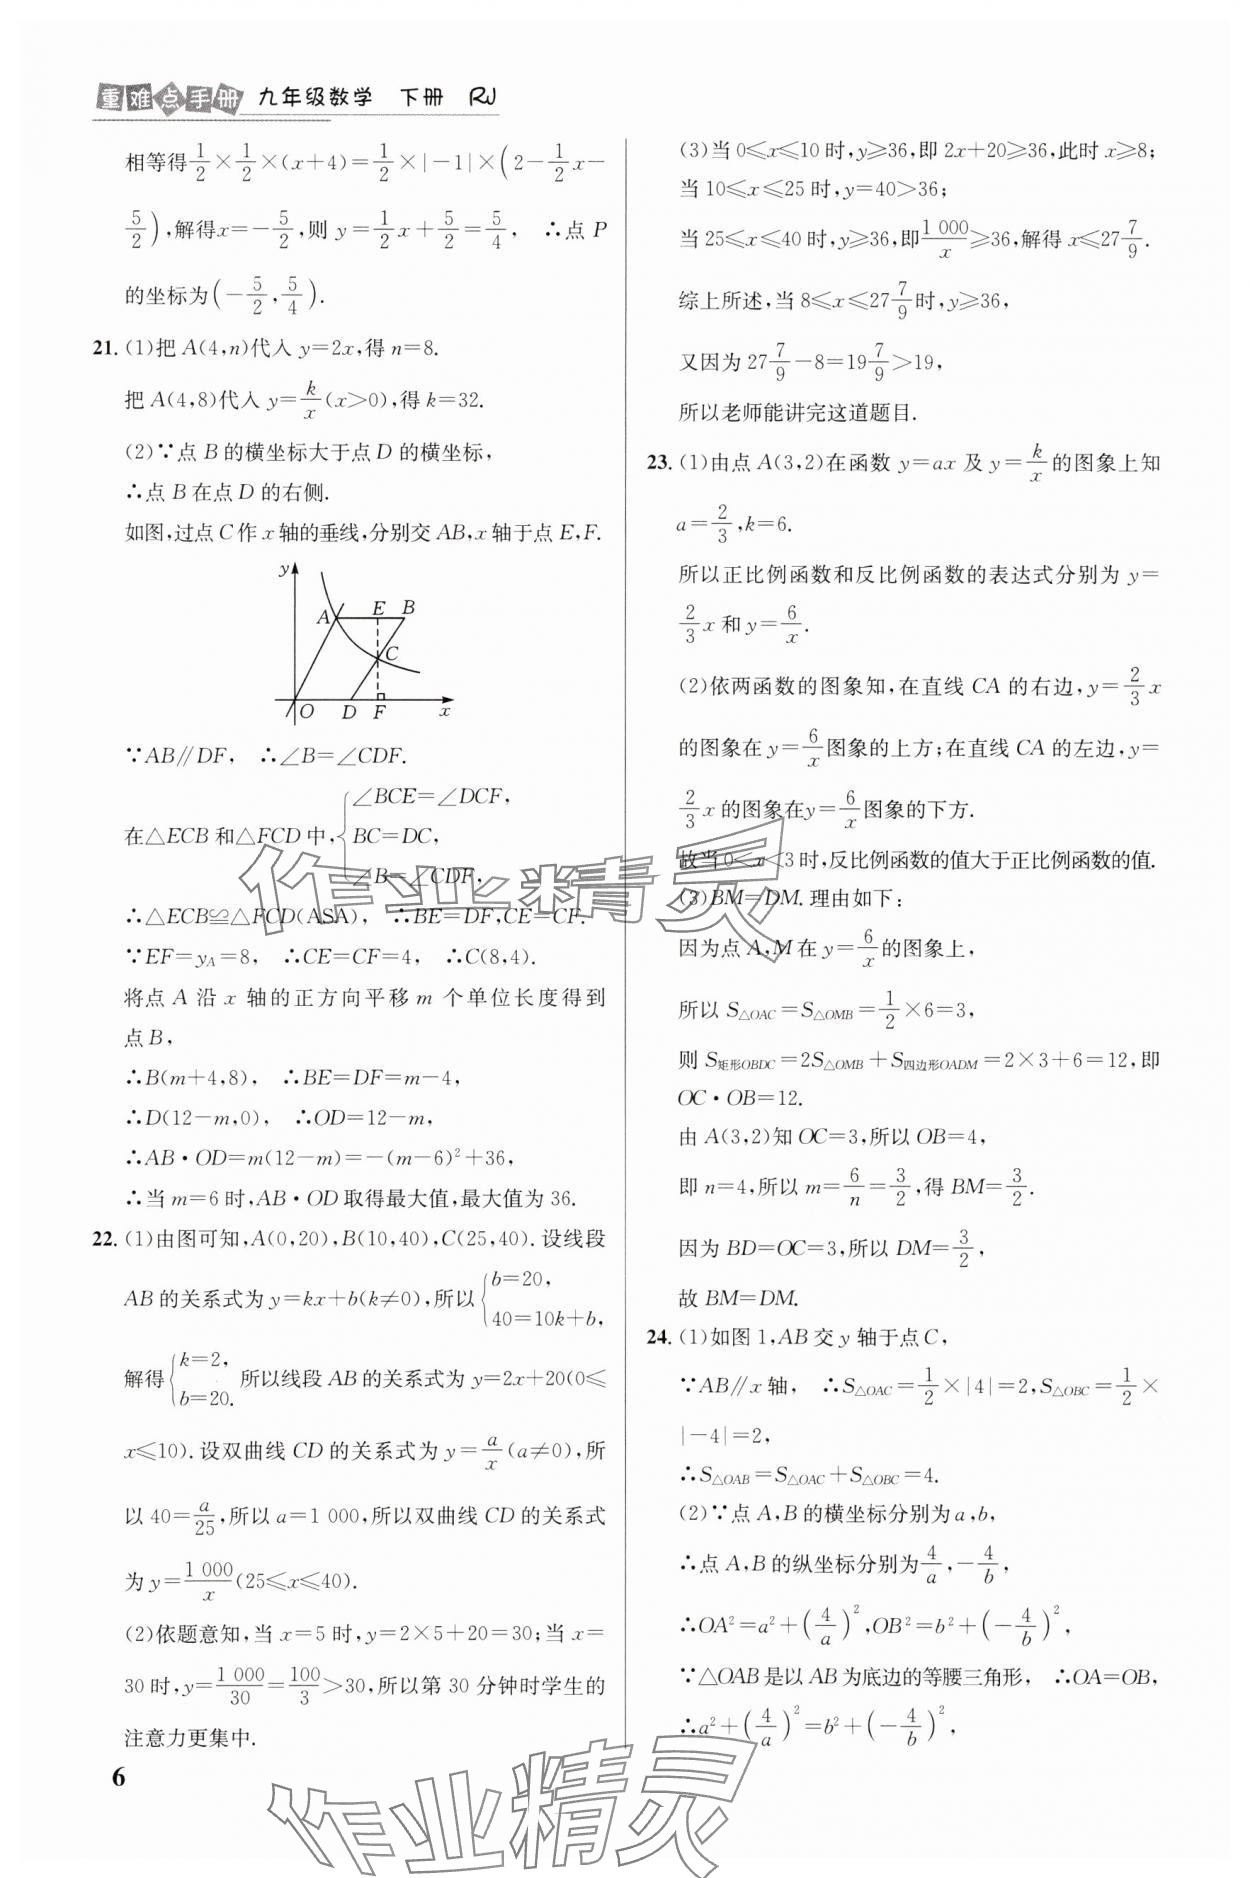 重难点手册 九年级数学 下册 RJ
相等得1/2×1/2×(x+4)=1/2×|-1|×(2-1/2x-
5/2),解得x=-5/2,则 y=1/2x+5/2=5/4, ∴点 P
的坐标为(-5/2,5/4).
21. (1)把 A(4,n)代入 y=2x,得 n=8.
把 A(4,8)代入 y=k/x(x>0),得 k=32.
(2)∵点 B 的横坐标大于点 D 的横坐标,
∴点 B 在点 D 的右侧.
如图,过点 C 作 x 轴的垂线,分别交 AB,x 轴于点 E,F.
y
A E B
C
O D F x
∵AB∥DF, ∴∠B=∠CDF.
在△ECB 和△FCD 中,{∠BCE=∠DCF,
BC=DC,
∠B=∠CDF,
∴△ECB≌△FCD(ASA), ∴BE=DF,CE=CF.
∵EF=y_A=8, ∴CE=CF=4, ∴C(8,4).
将点 A 沿 x 轴的正方向平移 m 个单位长度得到
点 B,
∴B(m+4,8), ∴BE=DF=m-4,
∴D(12-m,0), ∴OD=12-m,
∴AB·OD=m(12-m)=-(m-6)²+36,
∴当 m=6 时,AB·OD 取得最大值,最大值为 36.
22. (1)由图可知,A(0,20),B(10,40),C(25,40).设线段
AB 的关系式为 y=kx+b(k≠0),所以{b=20,
40=10k+b,
解得{k=2,
b=20. 所以线段 AB 的关系式为 y=2x+20(0≤
x≤10).设双曲线 CD 的关系式为 y=a/x(a≠0),所
以 40=a/25,所以 a=1 000,所以双曲线 CD 的关系式
为 y=1 000/x(25≤x≤40).
(2)依题意知,当 x=5 时,y=2×5+20=30;当 x=
30 时,y=1 000/30=100/3>30,所以第 30 分钟时学生的
注意力更集中.
6
(3)当 0≤x≤10 时,y≥36,即 2x+20≥36,此时 x≥8;
当 10≤x≤25 时,y=40>36;
当 25≤x≤40 时,y≥36,即1 000/x≥36,解得 x≤27 7/9.
综上所述,当 8≤x≤27 7/9时,y≥36,
又因为 27 7/9-8=19 7/9>19,
所以老师能讲完这道题目.
23. (1)由点 A(3,2)在函数 y=ax 及 y=k/x的图象上知
a=2/3,k=6.
所以正比例函数和反比例函数的表达式分别为 y=
2/3x 和 y=6/x.
(2)依两函数的图象知,在直线 CA 的右边,y=2/3x
的图象在 y=6/x图象的上方;在直线 CA 的左边,y=
2/3x 的图象在y=6/x图象的下方.
故当 0<x<3 时,反比例函数的值大于正比例函数的值.
(3)BM=DM.理由如下:
因为点 A,M 在 y=6/x的图象上,
所以 S△OAC=S△OMB=1/2×6=3,
则 S矩形OBDC=2S△OMB+S四边形OADM=2×3+6=12,即
OC·OB=12.
由 A(3,2)知 OC=3,所以 OB=4,
即 n=4,所以 m=6/n=3/2,得 BM=3/2.
因为 BD=OC=3,所以 DM=3/2,
故 BM=DM.
24. (1)如图 1,AB 交 y 轴于点 C,
∵AB∥x 轴, ∴S△OAC=1/2×|4|=2,S△OBC=1/2×
|-4|=2,
∴S△OAB=S△OAC+S△OBC=4.
(2)∵点 A,B 的横坐标分别为 a,b,
∴点 A,B 的纵坐标分别为4/a,-4/b,
∴OA²=a²+(4/a)²,OB²=b²+(-4/b)²,
∵△OAB 是以 AB 为底边的等腰三角形, ∴OA=OB,
∴a²+(4/a)²=b²+(-4/b)²,
作业精灵
作业精灵